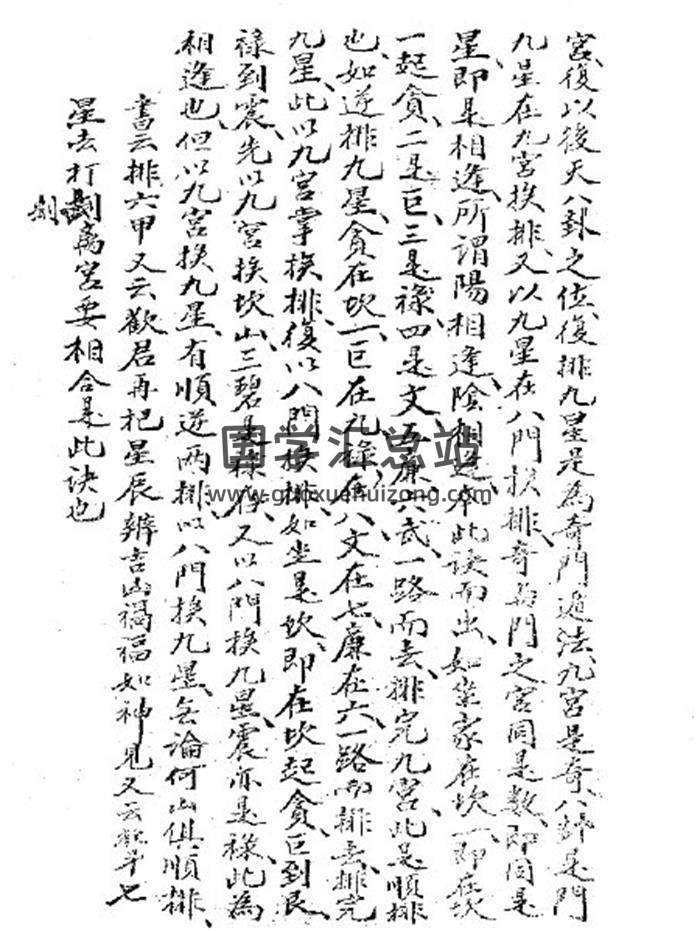 宮、復以後天八卦之位、復排九星、是為奇門遁法、九宮是奇、八卦是門
九星在九宮挨排、又以九星在八門挨排、奇與門之宮同是數、即同是
星、即是相逢、所謂陽相逢陰相逢、本此訣而出、如坐家在坎一、即在坎
一起貪、二是巨、三是祿、四是文、五廉、六武、一路而去、排完九宮、此是順排
也、如逆排九星、貪在坎一、巨在九、祿在八、文在七、廉在六、一路而排去、排完
九星、此以九宮掌挨排、復以八門挨排、如坐是坎、即在坎起貪、巨到艮、
祿到震、先以九宮挨坎山、三碧是祿存、又以八門挨九星、震亦是祿、此為
相逢也、但以九宮挨九星、有順逆兩排、以八門挨九星、無論何山俱順排、
書云排六甲又云歡君再把星辰辨吉凶禍福如神見又云 七
星去打劫離宮要相合是此訣也
劫
国学汇总站
www.guoxuehuizong.com